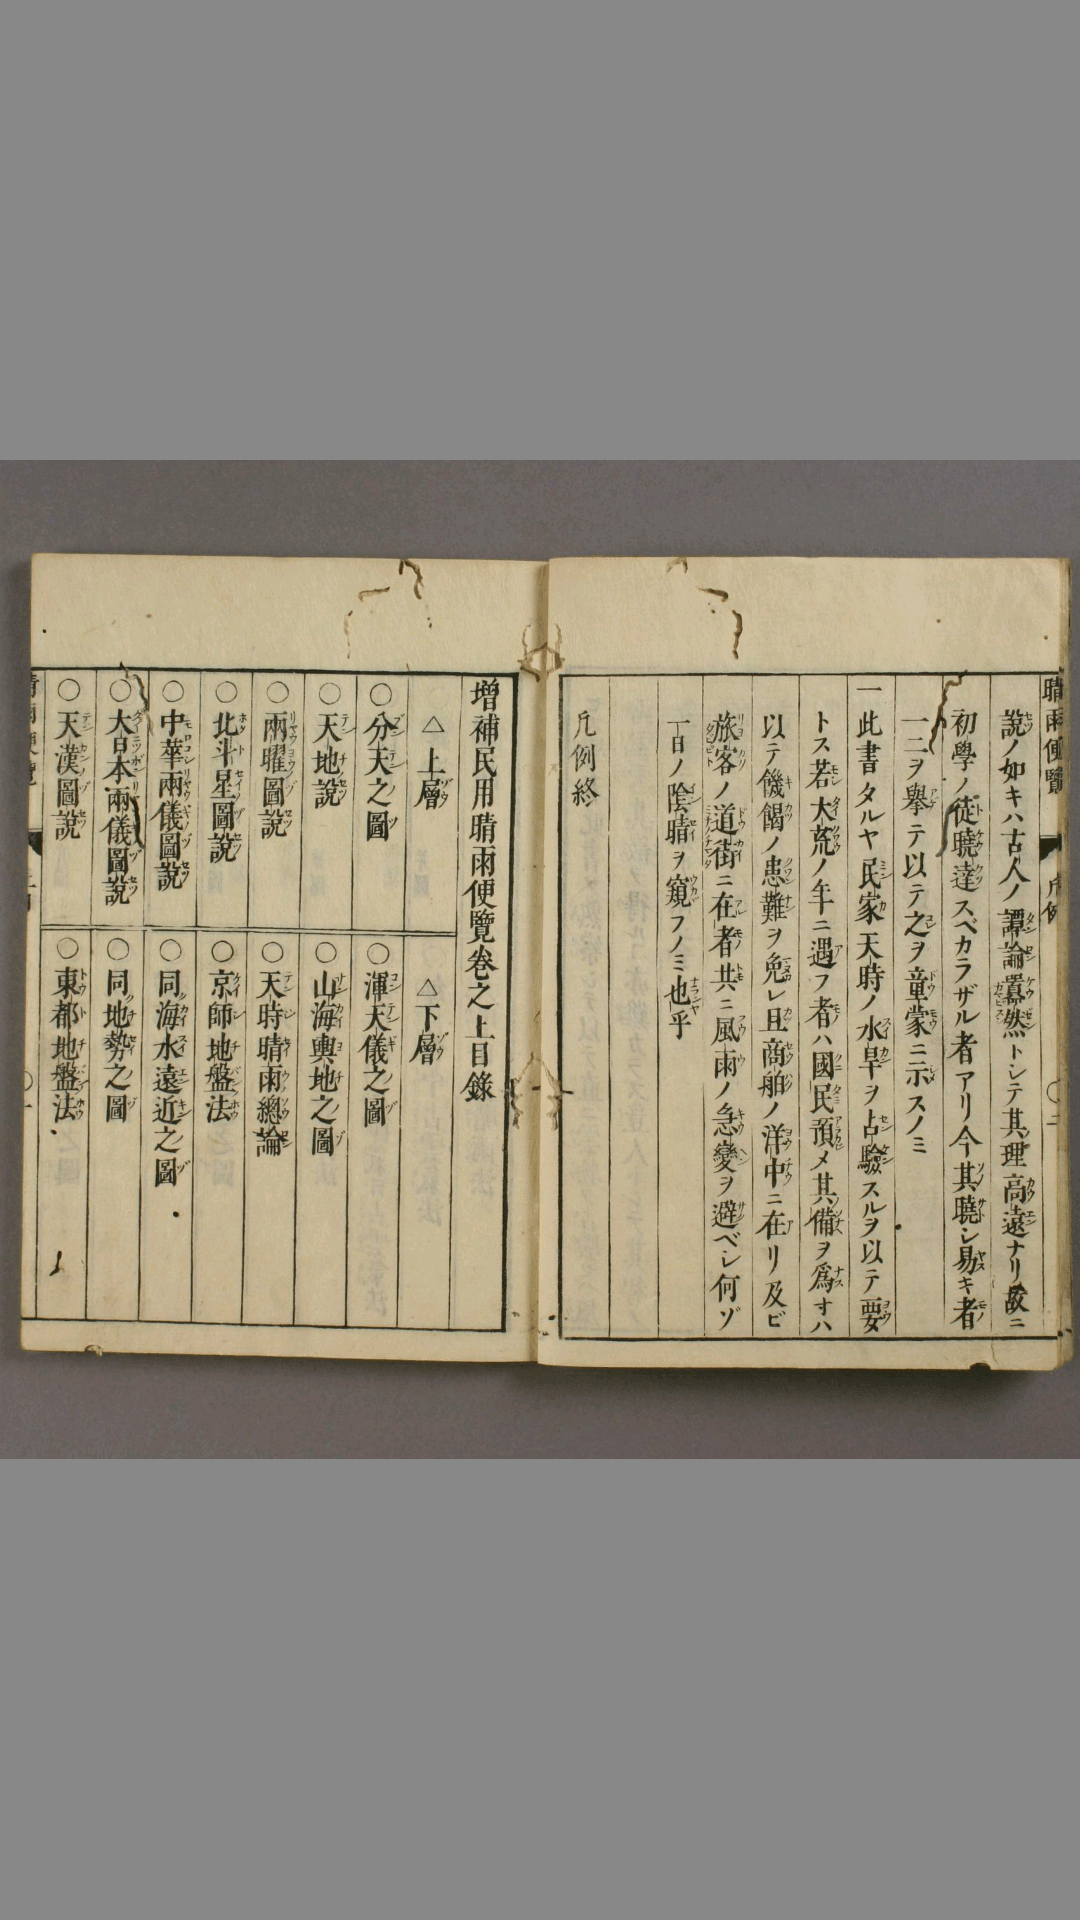 晴雨便覽 凡例 〇二
説ノ如キハ古人ノ譚論囂然トシテ其理高遠ナリ故ニ
初學ノ徒曉達スベカラザル者アリ今其曉シ易キ者
一二ヲ擧テ以テ之ヲ童蒙ニ示スノミ
一此書タルヤ民家天時ノ水旱ヲ占驗スルヲ以テ要
トス若大荒ノ年ニ遇フ者ハ國民預メ其備ヲ爲サハ
以テ饑餲ノ患難ヲ免レ且商舶ノ洋中ニ在リ及ビ
旅客ノ道街ニ在者共ニ風雨ノ急變ヲ避ベシ何ゾ
一日ノ陰晴ヲ窺フノミ也乎
凡例終
增補民用晴雨便覽卷之上目錄
△上層
〇分天之圖
〇天地説
〇兩曜圖説
〇北斗星圖説
〇中華兩儀圖説
〇大日本兩儀圖説
〇天漢圖説
△下層
〇渾天儀之圖
〇山海輿地之圖
〇天時晴雨總論
〇京師地盤法
〇同海水遠近之圖
〇同地勢之圖
〇東都地盤法